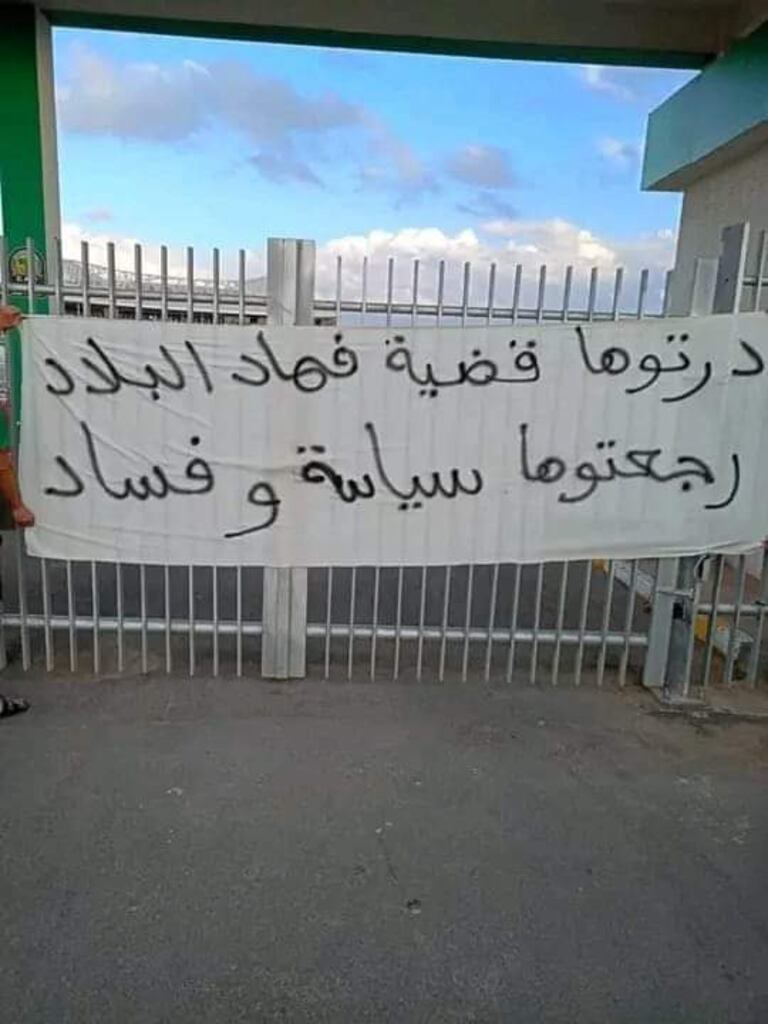 درتوها قضية فهاد البلاد
رجعتوها سياسة و فساد